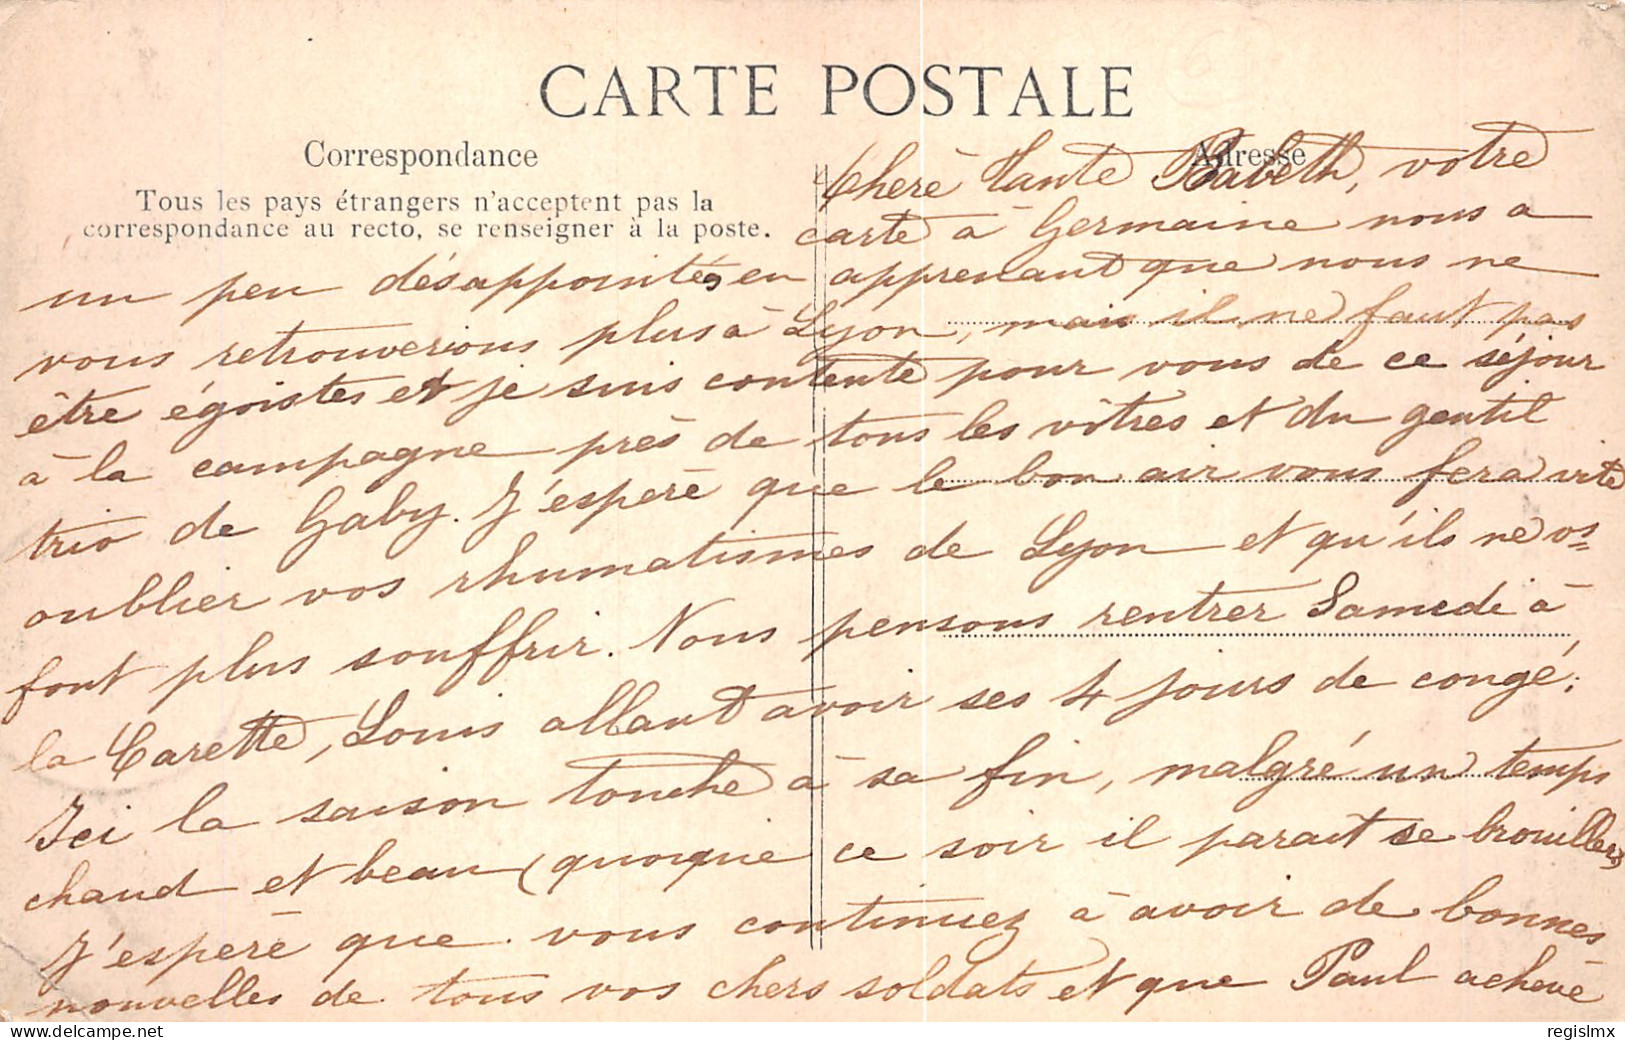 CARTE POSTALE
Correspondance
Adresse
Tous les pays étrangers n'acceptent pas la
correspondance au recto, se renseigner à la poste.
Chère Tante Babeth, votre
carte à Germaine nous a
un peu désappointés en apprenant que nous ne
vous retrouverions plus à Lyon, mais il ne faut pas
être égoistes et je suis contente pour vous de ce séjour
à la campagne près de tous les vôtres et du gentil
trio de Gaby. J'espère que le bon air vous fera vite
oublier vos rhumatismes de Lyon et qu'ils ne vs
font plus souffrir. Nous pensons rentrer Samedi à
la Carette, Louis allant avoir ses 4 jours de congé.
Ici la saison touche à sa fin, malgré un temps
chaud et beau (quoique ce soir il parait se brouiller)
J'espère que vous continuez à avoir de bonnes
nouvelles de tous vos chers soldats et que Paul achève
regislmx